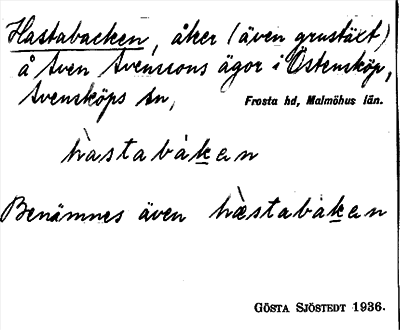 Hastabacken, åker (även grustäct)
å Sven Svenssons ägor i Östensköp,
Svensköps sn, Frosta hd, Malmöhus län.
hàstabàken
Benämnes även hæ̀staba̱ken
GÖSTA SJÖSTEDT 1936.